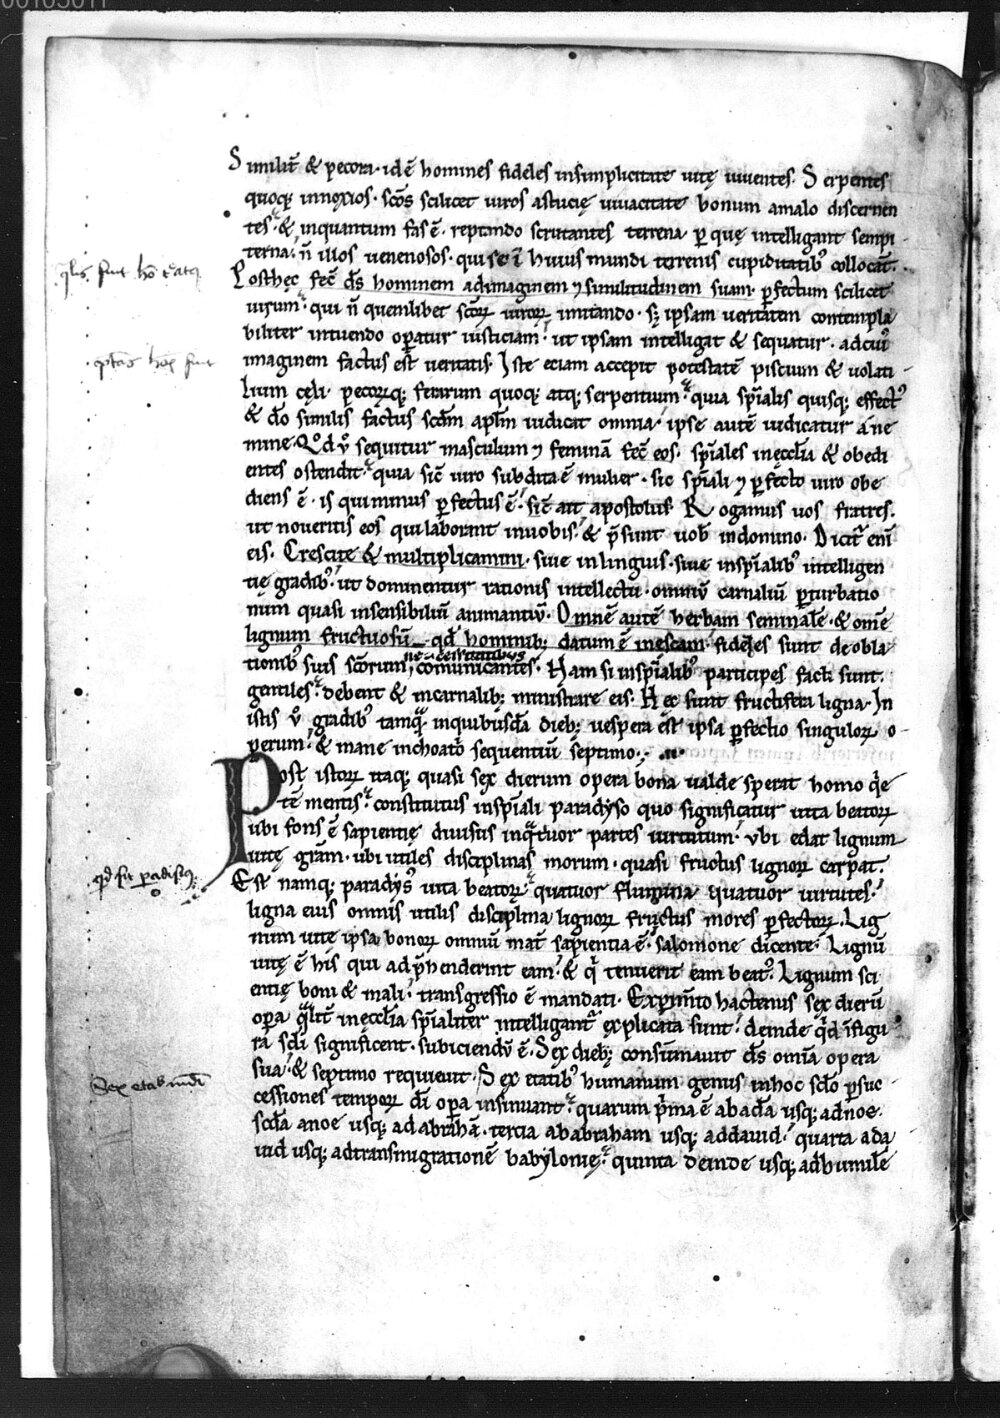 Similit̄ & pecora· id ē homines fideles insimplicitate uitę uiuentes. Serpentes
quoq; innoxios· sc̄os scilicet uiros astucię uiuacitate bonum amalo discernen
tes· & inquantum fas ē· reptando scrutantes terrena· ꝑ quę intelligant sempi
terna· n̄ illos uenenosos· qui se ī huius mundi terrenis cupiditatib; collocāt.
Posthec fec̄ d̄s hominem adimaginem ⁊ similitudinem suam· ꝑfectum scilicet
uirum· qui n̄ quemlibet sc̄oꝝ uiroꝝ imitando· s; ipsam ueritatem contempla
biliter intuendo oꝑatur iusticiam· ut ipsam intelligat & sequatur· adcuiꝰ
imaginem factus est ueritatis. Iste eciam accepit potestatē piscium & uolati
lium cęli· pecorūq; ferarum quoq; atq; serpentium· quia sp̄ialis quisq; effectꝰ
& d̄o similis factus sc̄dm apl̄m iudicat omnia· ipse autē iudicatur a ne
mine. Qd̄ ū sequitur masculum ⁊ feminā fec̄ eos· sp̄iales inęccl̄ia & obedi
entes ostendit· quia sic̄ uiro subdita ē mulier· sic sp̄iali ⁊ ꝑfecto uiro obe
diens ē· is qui minus ꝑfectus ē· sic̄ ait apostolus. Rogamus uos fratres.
ut noueritis eos qui laborant inuobis· & p̄sunt uob̄ indomino. Dicit̄ enī
eis. Crescite & multiplicamini· siue inlinguis· siue insp̄ialibꝰ intelligen
tię gradibꝰ· ut dominentur rationis intellectu· omniū carnaliū ꝑturbatio
num quasi insensibiliū animantiū. Omnē autē herbam seminalē & om̄e
lignum fructuosū qd̄ hominib; datum ē inescam· fideles sunt de obla
tionibꝰ suis sc̄orum necessitatibus comunicantes. Nam si insp̄ialibꝰ participes facti sunt.
gentiles· debent & incarnalib; ministrare eis. Hęc sunt fructifera ligna. In
istis ū gradibꝰ tamq̄ inquibusdā dieb; uespera est ipsa ꝑfectio singuloꝝ o
perum· & mane inchoatō sequentiū septimo.
Post istoꝝ itaq; quasi sex dierum opera bona ualde sperat homo q̄e
tē mentis· constitutus insp̄iali paradyso quo significatur uita beatoꝝ
ubi fons ē sapientię diuisus inq̄tuor partes uirtutum· ubi edat lignum
uitę grām· ubi utiles disciplinas morum· quasi fructus lignoꝝ carpat.
Est namq; paradysꝰ uita beatoꝝ· quatuor flumina quatuor uirtutes·
ligna eius omnis utilis disciplina lignoꝝ fructus mores ꝑfectoꝝ. Lig
num uite ipsa bonoꝝ omniū mat̄ sapientia ē· salomone dicente. Lignū
uitę ē his qui adp̄henderint eam· & q̄ tenuerit eam beatꝰ. Lignum sci
entię boni & mali· transgressio ē mandati. Exprimto hactenus sex dierū
oꝑa q̄lit̄ inęccl̄ia sp̄ialiter intelligant̄ explicata sunt· deinde q̄d īfigu
ra sc̄di significent· subiciendū ē. Sex dieb; consummauit d̄s omīa opera
sua· & septimo requieuit. Sex etatibꝰ humanum genus inhoc sc̄lo ꝑsuc
cessiones tempoꝝ dī oꝑa insinuant· quarum p̄ma ē ab adā usq; adnoe·
sc̄da anoe usq; ad abrahā· tercia ababraham usq; addauid· quarta ada
uid usq; adtransmigrationē babylonię· quinta deinde usq; adhumilē
qd̄ sit ꝑadisꝰ
Sex etates mūdi